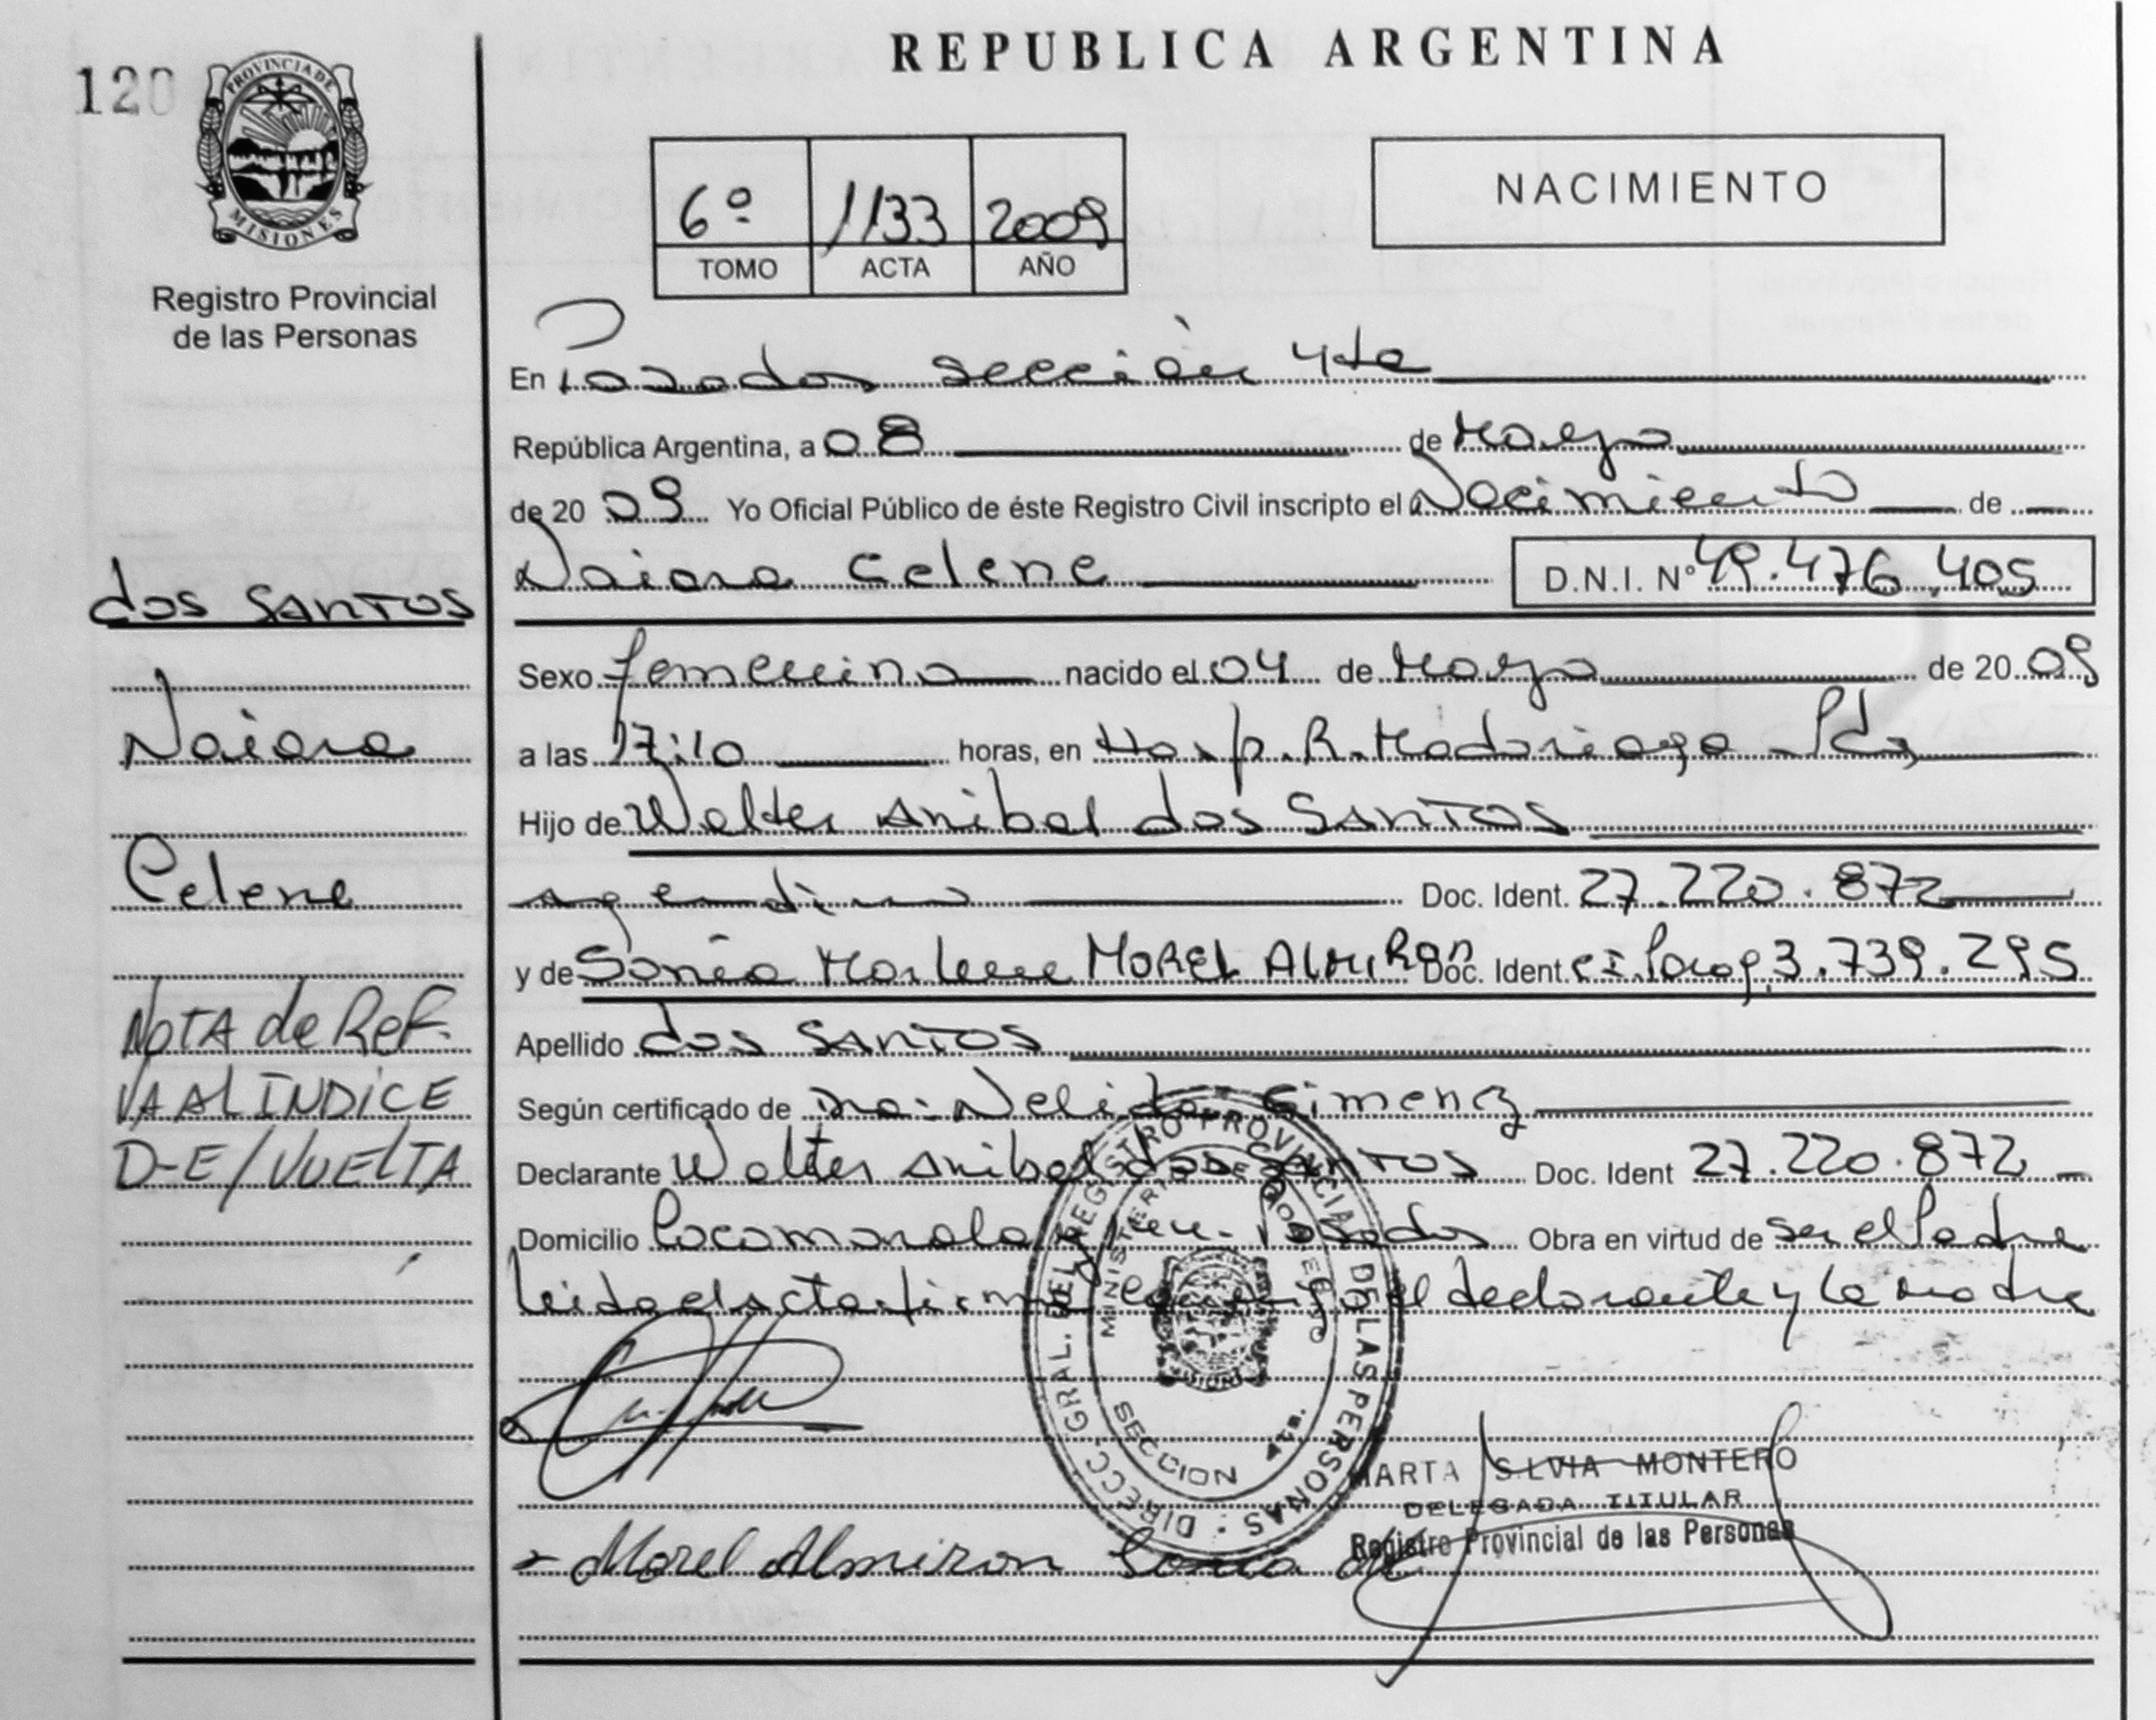 REPUBLICA ARGENTINA
120
PROVINCIA DE
MISIONES
Registro Provincial
de las Personas
6º 1133 2009
TOMO ACTA AÑO
NACIMIENTO
En Posadas sección 4ta
República Argentina, a 08 de Marzo
de 20 09 Yo Oficial Público de éste Registro Civil inscripto el Nacimiento de
Naiara Celene D.N.I. Nº 49.476.405
dos SANTOS
Naiara
Celene
NOTA de REF.
VA AL INDICE
D-E/VUELTA
Sexo femenino nacido el 04 de Marzo de 20 09
a las 17:10 horas, en Hosp. R. Madariaga - Pdas
Hijo de Walter Anibal dos SANTOS
argentino Doc. Ident. 27.220.872
y de Sonia Marlene MOREL ALMIRON Doc. Ident. CI Parag. 3.739.295
Apellido dos SANTOS
Según certificado de Dra. Nelida Gimenez
Declarante Walter Anibal dos SANTOS Doc. Ident 27.220.872
Domicilio Cocomarola Posadas Obra en virtud de ser el Padre
leida el acta firman el declarante y la madre
DIRECC. GRAL. DEL REGISTRO PROVINCIAL DE LAS PERSONAS
MINISTERIO DE GOBIERNO
SECCION 4ta.
MARTA SILVIA MONTERO
DELEGADA TITULAR
Registro Provincial de las Personas
Morel Almiron Sonia M